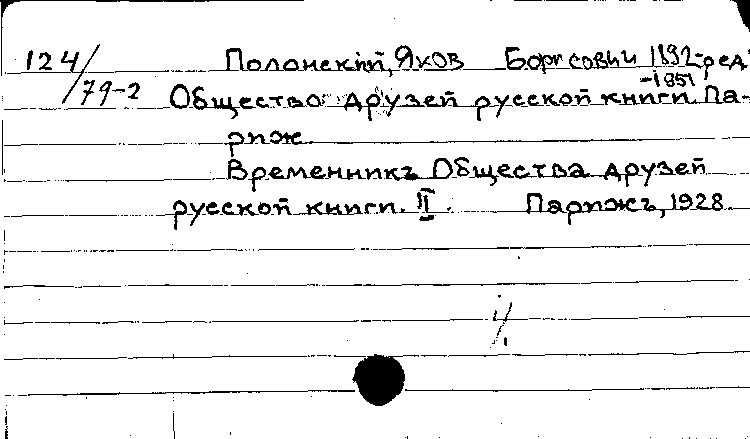 124/79-2 Полонский, Яков Борисович 1892- ред
-1951
Общество друзей русской книги. Па-
риж.
Временникъ Общества друзей
русской книги. II. Парижъ, 1928.